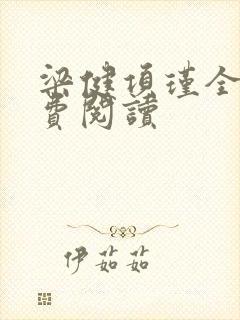 梁健項瑾全
費閱讀
伊茹茹